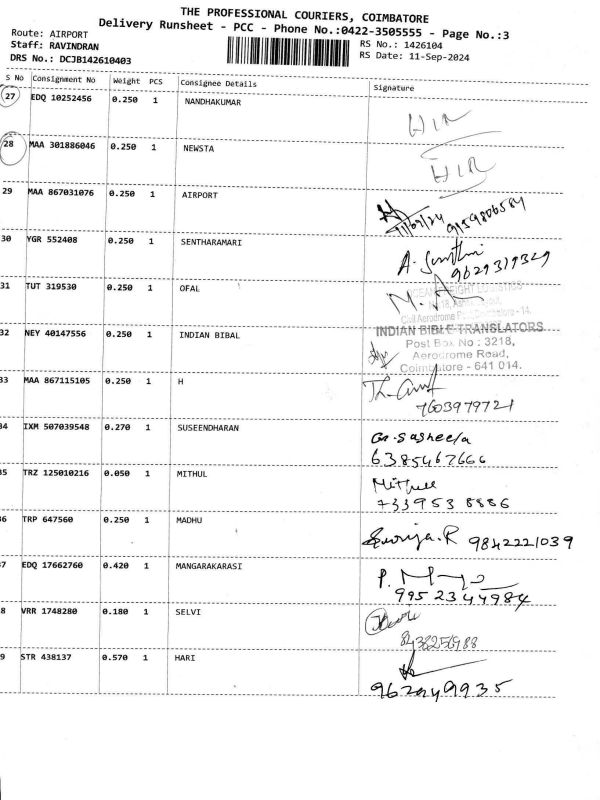 THE PROFESSIONAL COURIERS, COIMBATORE
Delivery Runsheet - PCC - Phone No.:0422-3505555 - Page No.:3
Route: AIRPORT
RS No.: 1426104
Staff: RAVINDRAN
RS Date: 11-Sep-2024
DRS No.: DCJB142610403
S No Consignment No Weight PCS Consignee Details Signature
27 EDQ 10252456 0.250 1 NANDHAKUMAR
28 MAA 301886046 0.250 1 NEWSTA
29 MAA 867031076 0.250 1 AIRPORT
11/09/24 9159806584
30 YGR 552408 0.250 1 SENTHARAMARI
9629319329
31 TUT 319530 0.250 1 OFAL
32 NEY 40147556 0.250 1 INDIAN BIBAL
INDIAN BIBLE TRANSLATORS
Post Box No : 3218,
Aerodrome Road,
Coimbatore - 641 014.
33 MAA 867115105 0.250 1 H
7603979721
34 IXM 507039548 0.270 1 SUSEENDHARAN
6385467666
35 TRZ 125010216 0.050 1 MITHUL
733953 8886
36 TRP 647560 0.250 1 MADHU
9842221039
37 EDQ 17662760 0.420 1 MANGARAKARASI
9952344984
8 VRR 1748280 0.180 1 SELVI
8438256988
9 STR 438137 0.570 1 HARI
9629499935